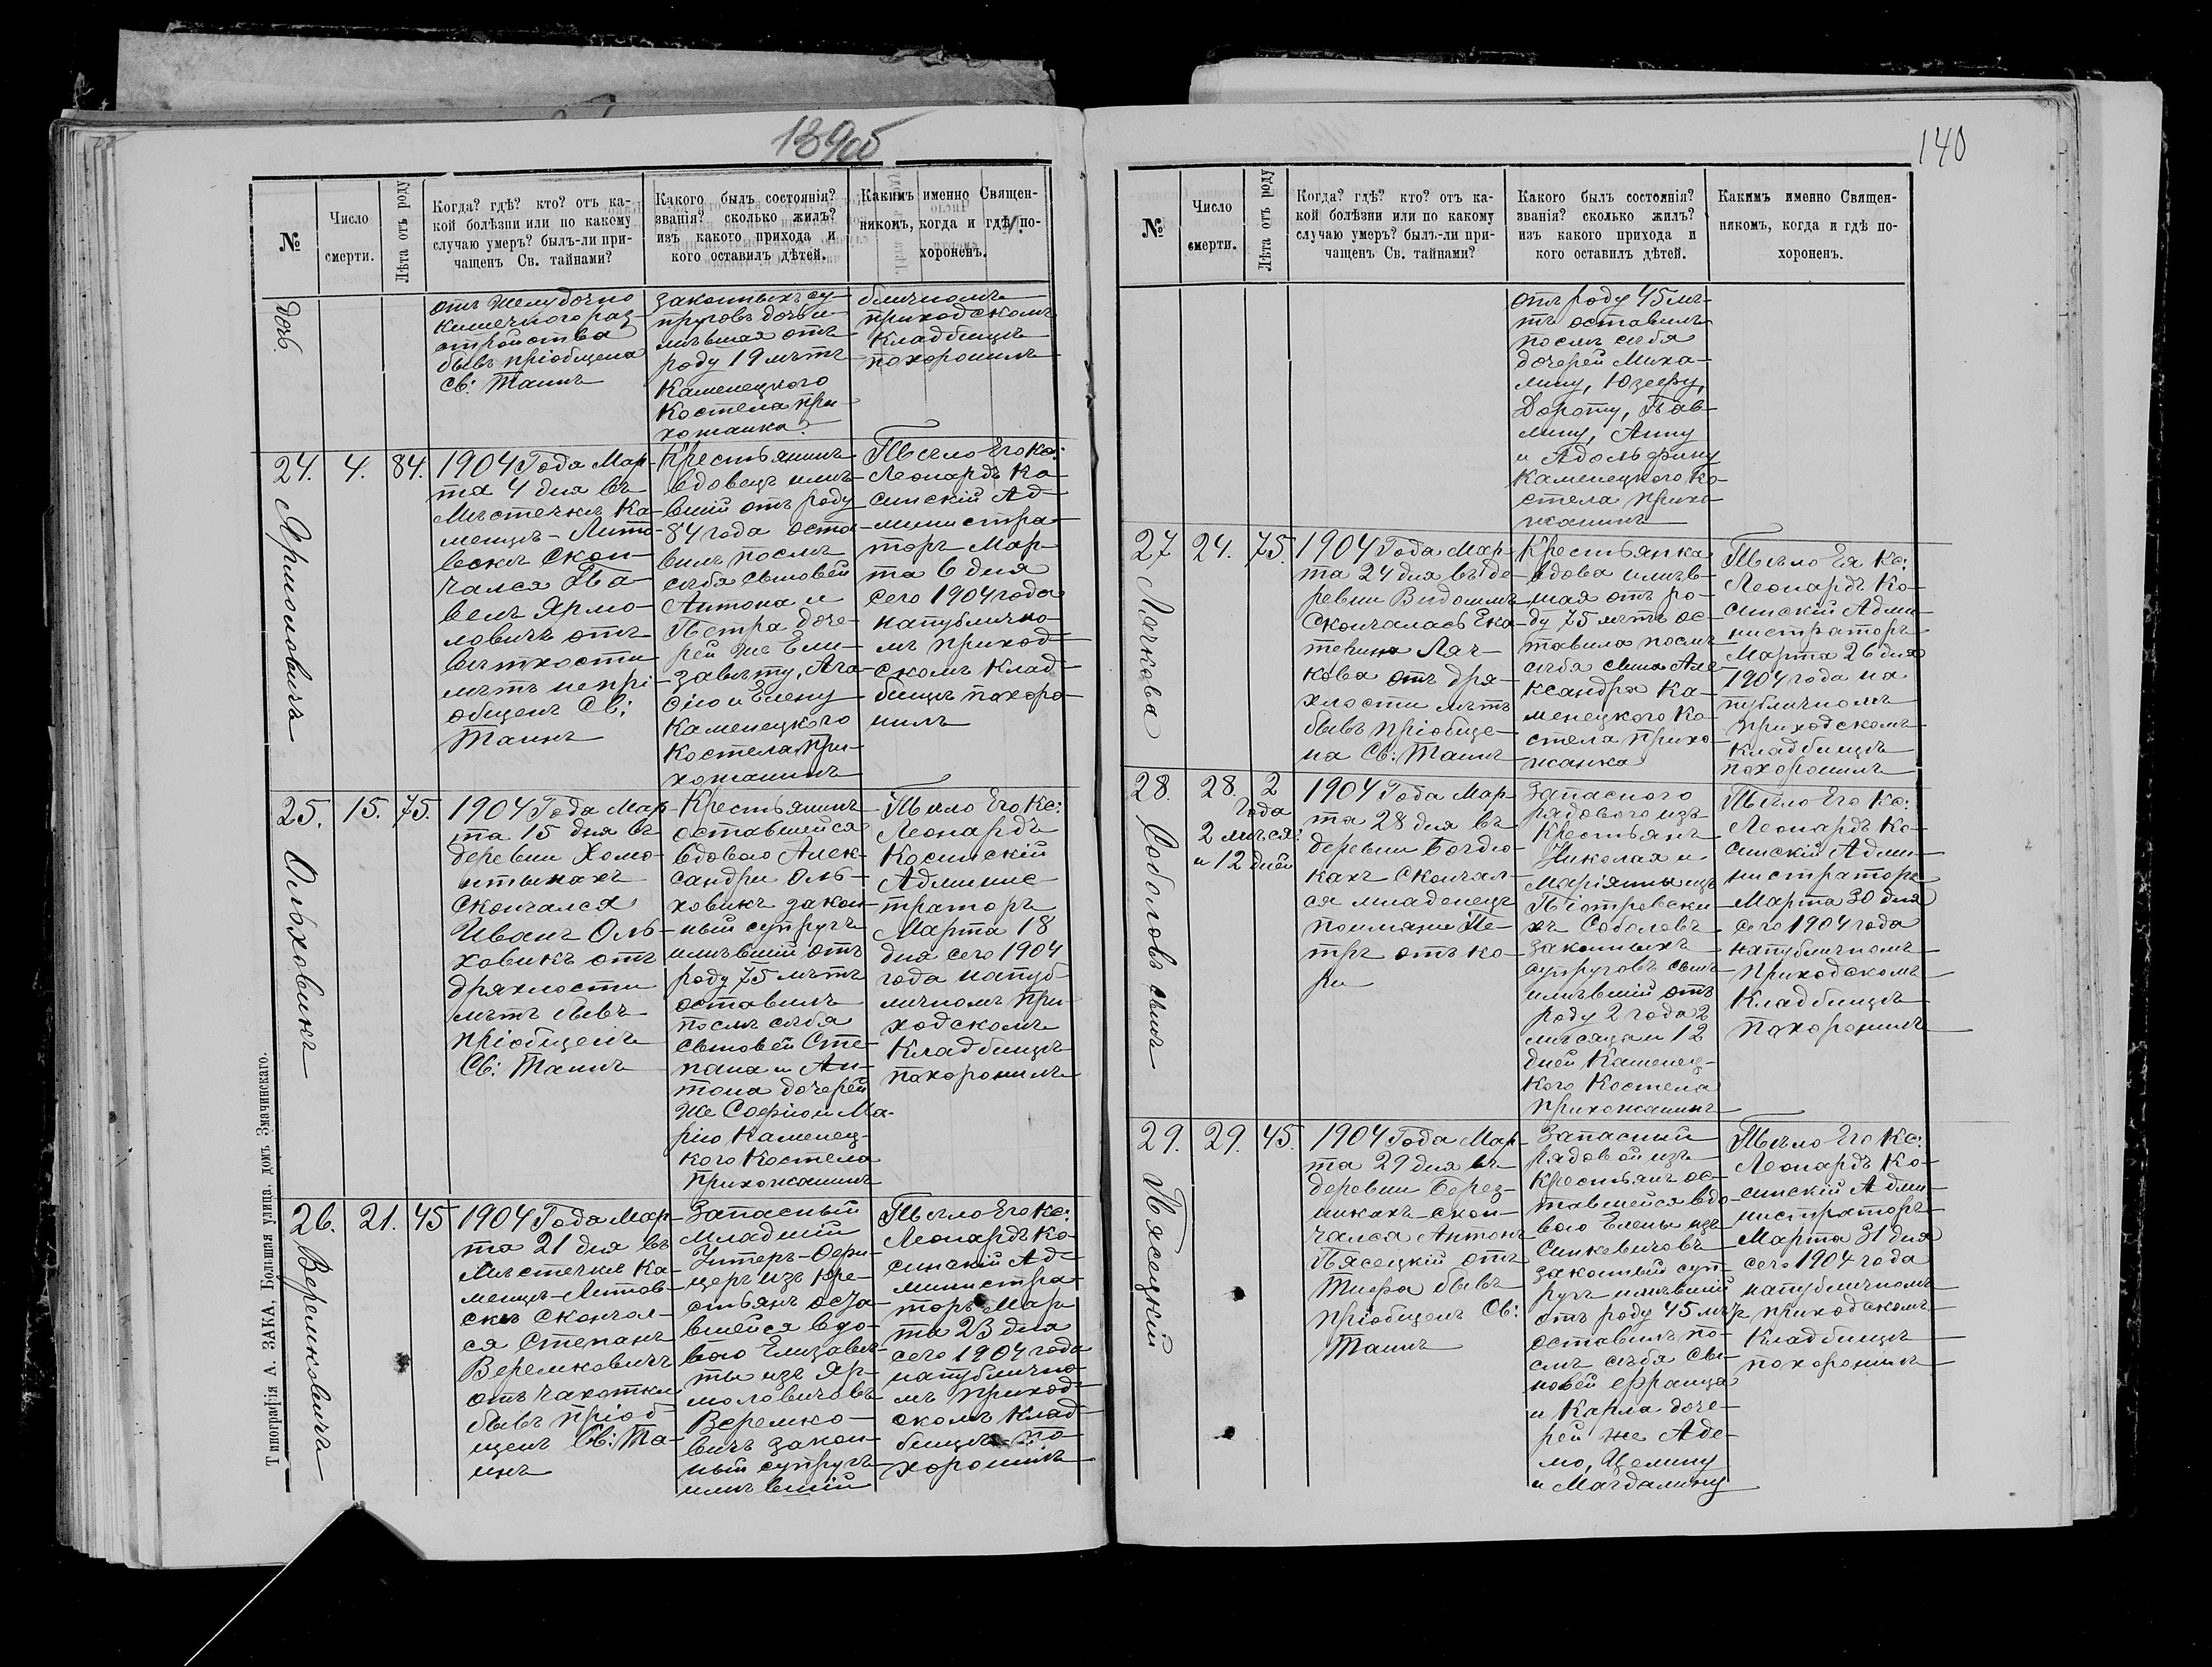 139об
№
Число
смерти.
Лѣта отъ роду
Когда? гдѣ? кто? отъ ка-
кой болѣзни или по какому
случаю умеръ? былъ-ли при-
чащенъ Св. тайнами?
Какого былъ состоянія?
званія? сколько жилъ?
изъ какого прихода и
кого оставилъ дѣтей.
Какимъ именно Священ-
никомъ, когда и гдѣ по-
хороненъ.
дочь.
отъ Желудочно
кишечного раз-
стройства
бывъ пріобщена
Св: Таинъ
законныхъ су-
пруговъ дочь и-
мѣвшая отъ
роду 19 лѣтъ
Каменецкого
Костела при-
хожанка.
бличномъ
приходскомъ
Кладбищѣ
похоронилъ
24.
Ярмоловичъ
4.
84.
1904 Года Мар-
та 4 дня въ
Мѣстечкѣ Ка-
менцѣ-Лито-
вскѣ Скон-
чался Па-
велъ Ярмо-
ловичъ отъ
ветхости
лѣтъ непрі-
общенъ Св:
Таинъ
Крестьянинъ
вдовецъ имѣ-
вшій отъ роду
84 года оста-
вилъ послѣ
себя сыновей
Антона и
Петра доче-
рей же Ели-
завету, Ага-
фію и Елену
Каменецкого
Костела при-
хожанинъ
Тѣло Его Кс:
Леонардъ Ко-
синскій Ад-
министра-
торъ Мар-
та 6 дня
сего 1904 года
на публично-
мъ приход-
скомъ Клад-
бищѣ похоро-
нилъ
25.
Ольховикъ
15.
75.
1904 Года Мар-
та 15 дня въ
деревни Хомо-
нтынахъ
Скончался
Иванъ Оль-
ховикъ отъ
дряхлости
лѣтъ бывъ
пріобщенъ
Св: Таинъ
Крестьянинъ
оставшейся
вдовою Алек-
сандри Оль-
ховикъ закон-
ный супругъ
имѣвшій отъ
роду 75 лѣтъ
оставилъ
послѣ себя
сыновей Сте-
пана и Ан-
тона дочерей
же Софію и Ма-
рію Каменец-
кого Костела
прихожанинъ
Тѣло Его Кс:
Леонардъ
Косинскій
Админис
траторъ
Марта 18
дня сего 1904
года на пуб
личномъ при-
ходскомъ
Кладбищѣ
похоронилъ
26.
Веремковичъ
21.
45
1904 Года Мар-
та 21 дня въ
Мѣстечкѣ Ка-
менцѣ-Литов-
скѣ Скончал-
ся Степанъ
Веремковичъ
отъ чахотки
бывъ пріоб-
щенъ Св: Та-
инъ
Запасный
младшій
Унтеръ-Офи-
церъ изъ кре-
стьянъ оста-
вшейся вдо-
вою Елизаве-
ты изъ Яр-
моловичовъ
Веремко-
вичъ закон-
ный супругъ
имѣвшій
Тѣло Его Кс:
Леонардъ Ко-
синскій Ад-
министра-
торъ Мар-
та 23 дня
сего 1904 года
на публично-
мъ приход-
скомъ Клад-
бищѣ по-
хоронилъ
Типографія А. ЗАКА, Большая улица, домъ Змачинскаго.
140
№
Число
смерти.
Лѣта отъ роду
Когда? гдѣ? кто? отъ ка-
кой болѣзни или по какому
случаю умеръ? былъ-ли при-
чащенъ Св. тайнами?
Какого былъ состоянія?
званія? сколько жилъ?
изъ какого прихода и
кого оставилъ дѣтей.
Какимъ именно Священ-
никомъ, когда и гдѣ по-
хороненъ.
отъ роду 45 лѣ-
тъ оставилъ
послѣ себя
дочерей Миха-
лину, Юзефу,
Дороту, Пав-
лину, Анну
и Адольфину
Каменецкого Ко-
стела прихо-
жанинъ
27
Лочкова
24.
75.
1904 Года Мар-
та 24 дня въ де-
ревни Видомлѣ
Скончалась Ека-
терина Ляч-
кова отъ дря-
хлости лѣтъ
бывъ пріобще-
на Св: Таинъ
Крестьянка
вдова имѣв-
шая отъ ро-
ду 75 лѣтъ ос-
тавила послѣ
себя сына Але-
ксандра Ка-
менецкого Ко-
стела прихо-
жанка
Тѣло Ея Кс:
Леонардъ Ко-
синскій Адми-
нистраторъ
Марта 26 дня
1904 года на
публичномъ
приходскомъ
Кладбищѣ
похоронилъ
28.
Соболовъ сынъ
28.
2
года
2 мѣся:
и 12 дней
1904 Года Мар-
та 28 дня въ
деревни Богдю-
кахъ Скончал-
ся младенецъ
по имени Пе-
тръ отъ ко-
ри
Запасного
рядового изъ
Крестьянъ
Николая и
Маріянны изъ
Піотровски-
хъ Соболовъ
законныхъ
супруговъ сынъ
имѣвшій отъ
роду 2 года 2
мѣсяца и 12
дней Каменец-
кого Костела
прихожанинъ
Тѣло Его Кс:
Леонардъ Ко-
синскій Адми-
нистраторъ
Марта 30 дня
сего 1904 года
на публичномъ
приходскомъ
Кладбищѣ
похоронилъ
29.
Пясецкій
29.
45.
1904 Года Мар-
та 29 дня въ
деревни Берез-
никахъ скон-
чался Антонъ
Пясецкій отъ
Тифа бывъ
пріобщенъ Св:
Таинъ
Запасный
рядовой изъ
крестьянъ ос-
тавшейся вдо-
вою Елены изъ
Синкевичовъ
законный суп-
ругъ имѣвшій
отъ роду 45 лѣтъ
оставилъ по-
слѣ себя сы-
новей Франца
и Карла доче-
рей же Аде-
лю, Целину
и Магдалину
Тѣло Его Кс:
Леонардъ Ко-
синскій Адми-
нистраторъ
Марта 31 дня
сего 1904 года
на публичномъ
приходскомъ
Кладбищѣ
похоронилъ